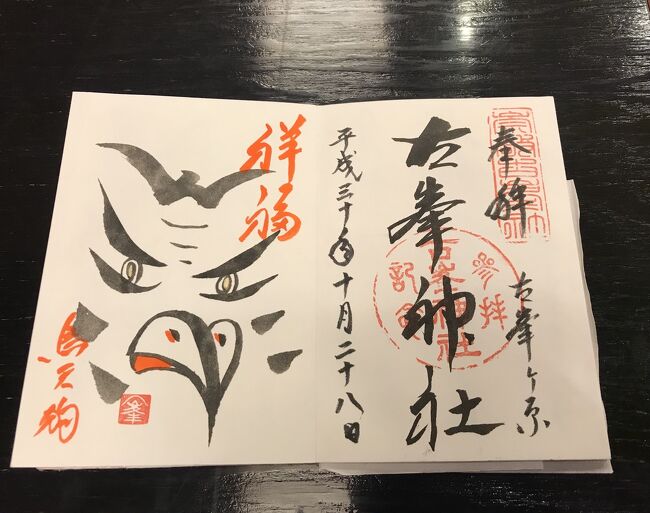 奉拝
古峯ヶ原
古峯神社
参拝
記念
古峯神社
平成三十年十月二十八日
祥福
烏天狗